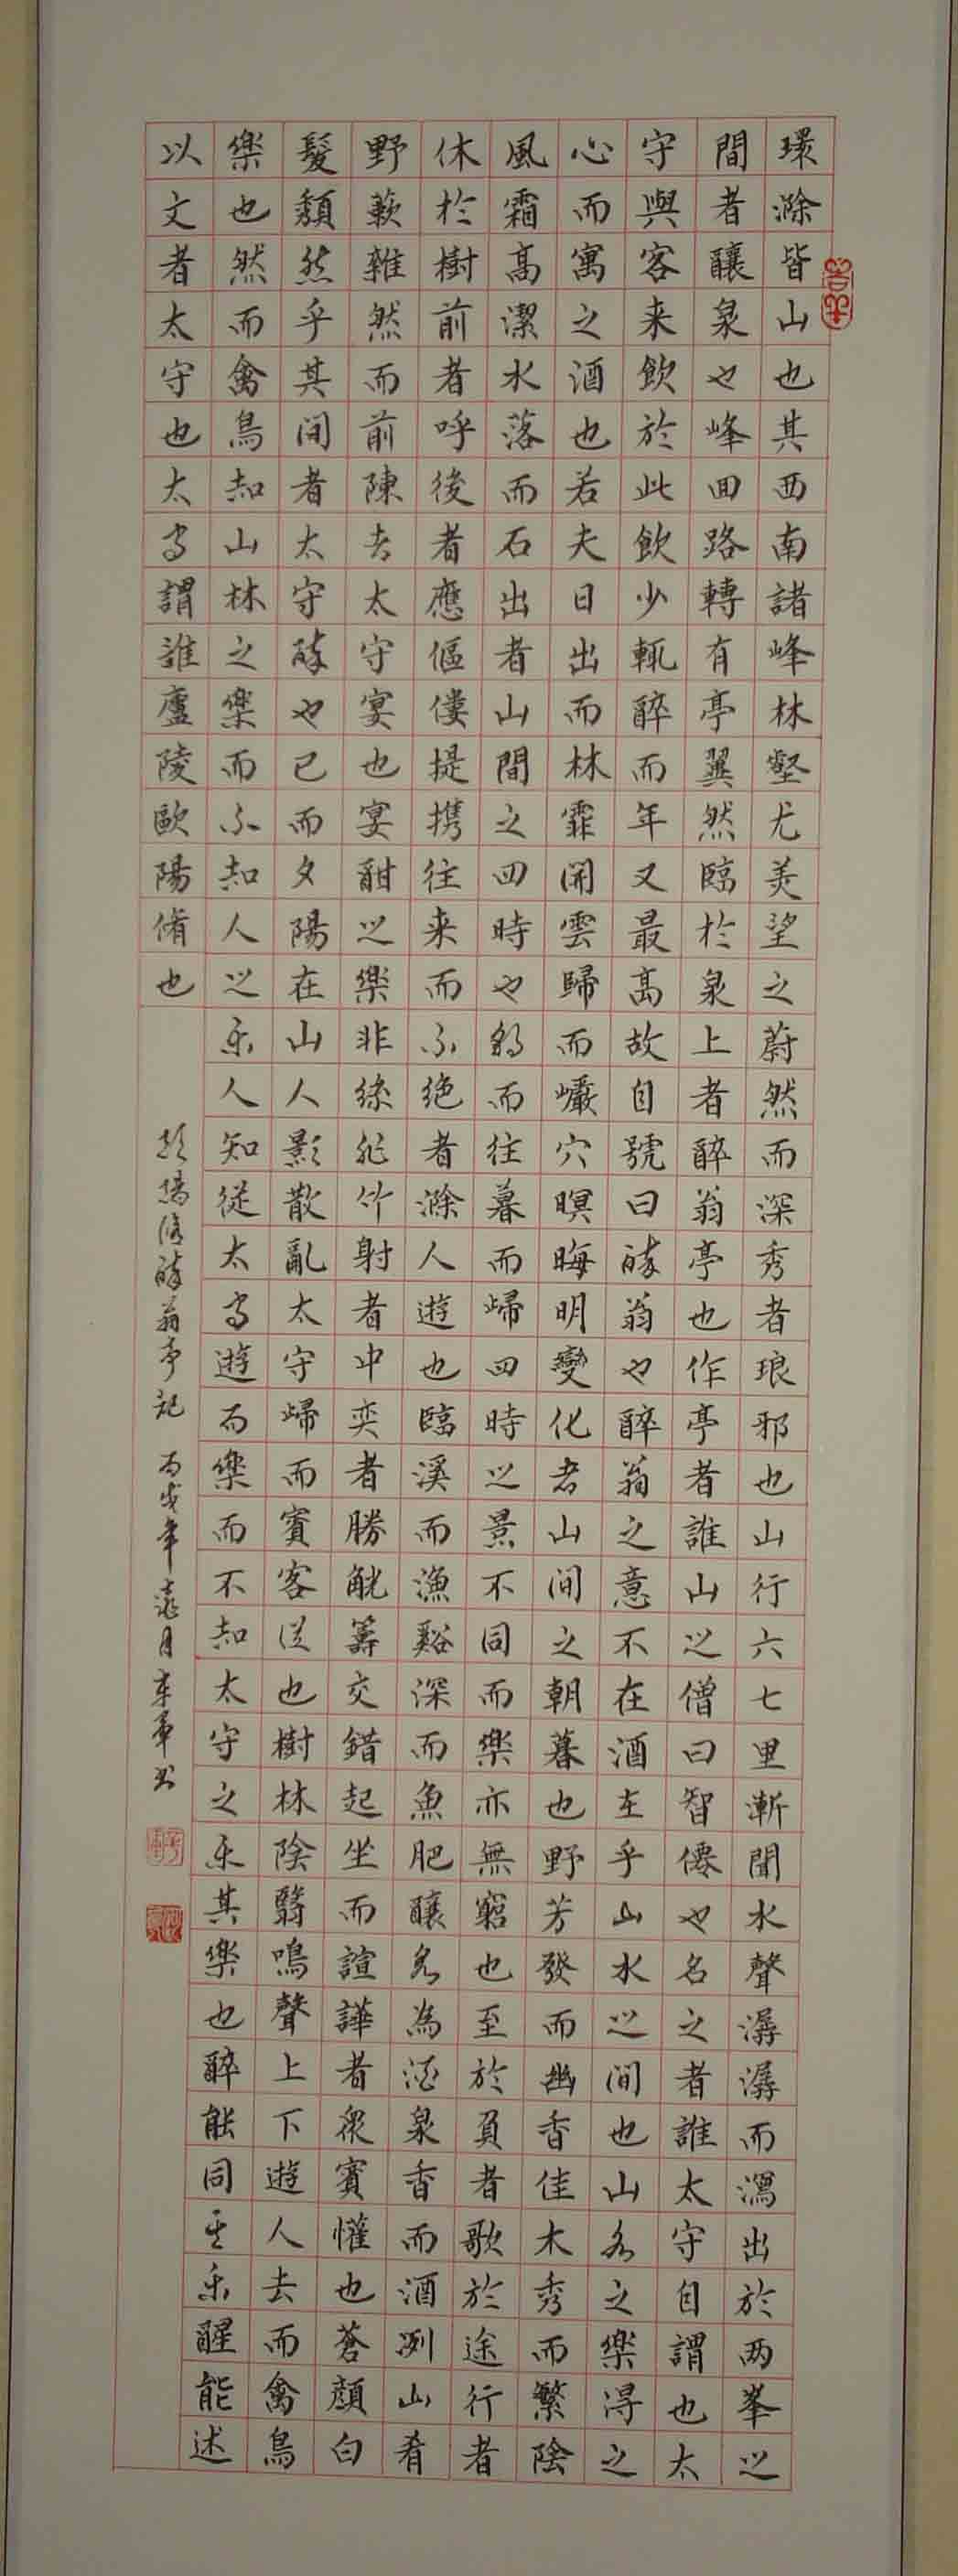 環滁皆山也其西南諸峰林壑尤美望之蔚然而深秀者琅邪也山行六七里漸聞水聲潺潺而瀉出於两峯之
間者釀泉也峰回路轉有亭翼然臨於泉上者醉翁亭也作亭者誰山之僧曰智僊也名之者誰太守自謂也太
守與客来飲於此飲少輒醉而年又最高故自號曰醉翁也醉翁之意不在酒在乎山水之间也山水之樂得之
心而寓之酒也若夫日出而林霏開雲歸而巗穴暝晦明變化者山间之朝暮也野芳發而幽香佳木秀而繁陰
風霜高潔水落而石出者山間之四時也朝而往暮而歸四時之景不同而樂亦無窮也至於負者歌於途行者
休於樹前者呼後者應傴僂提携往来而不绝者滁人遊也臨溪而漁谿深而魚肥釀泉為酒泉香而酒冽山肴
野蔌雜然而前陳者太守宴也宴酣之樂非絲非竹射者中奕者勝觥籌交錯起坐而諠譁者衆賓懽也蒼顔白
髮頹然乎其间者太守醉也已而夕陽在山人影散亂太守歸而賓客從也樹林陰翳鳴聲上下遊人去而禽鳥
樂也然而禽鳥知山林之樂而不知人之乐人知從太守遊而樂而不知太守之乐其樂也醉能同其乐醒能述
以文者太守也太守謂誰廬陵歐陽脩也
歐陽脩醉翁亭記 丙戌年 月 軍书